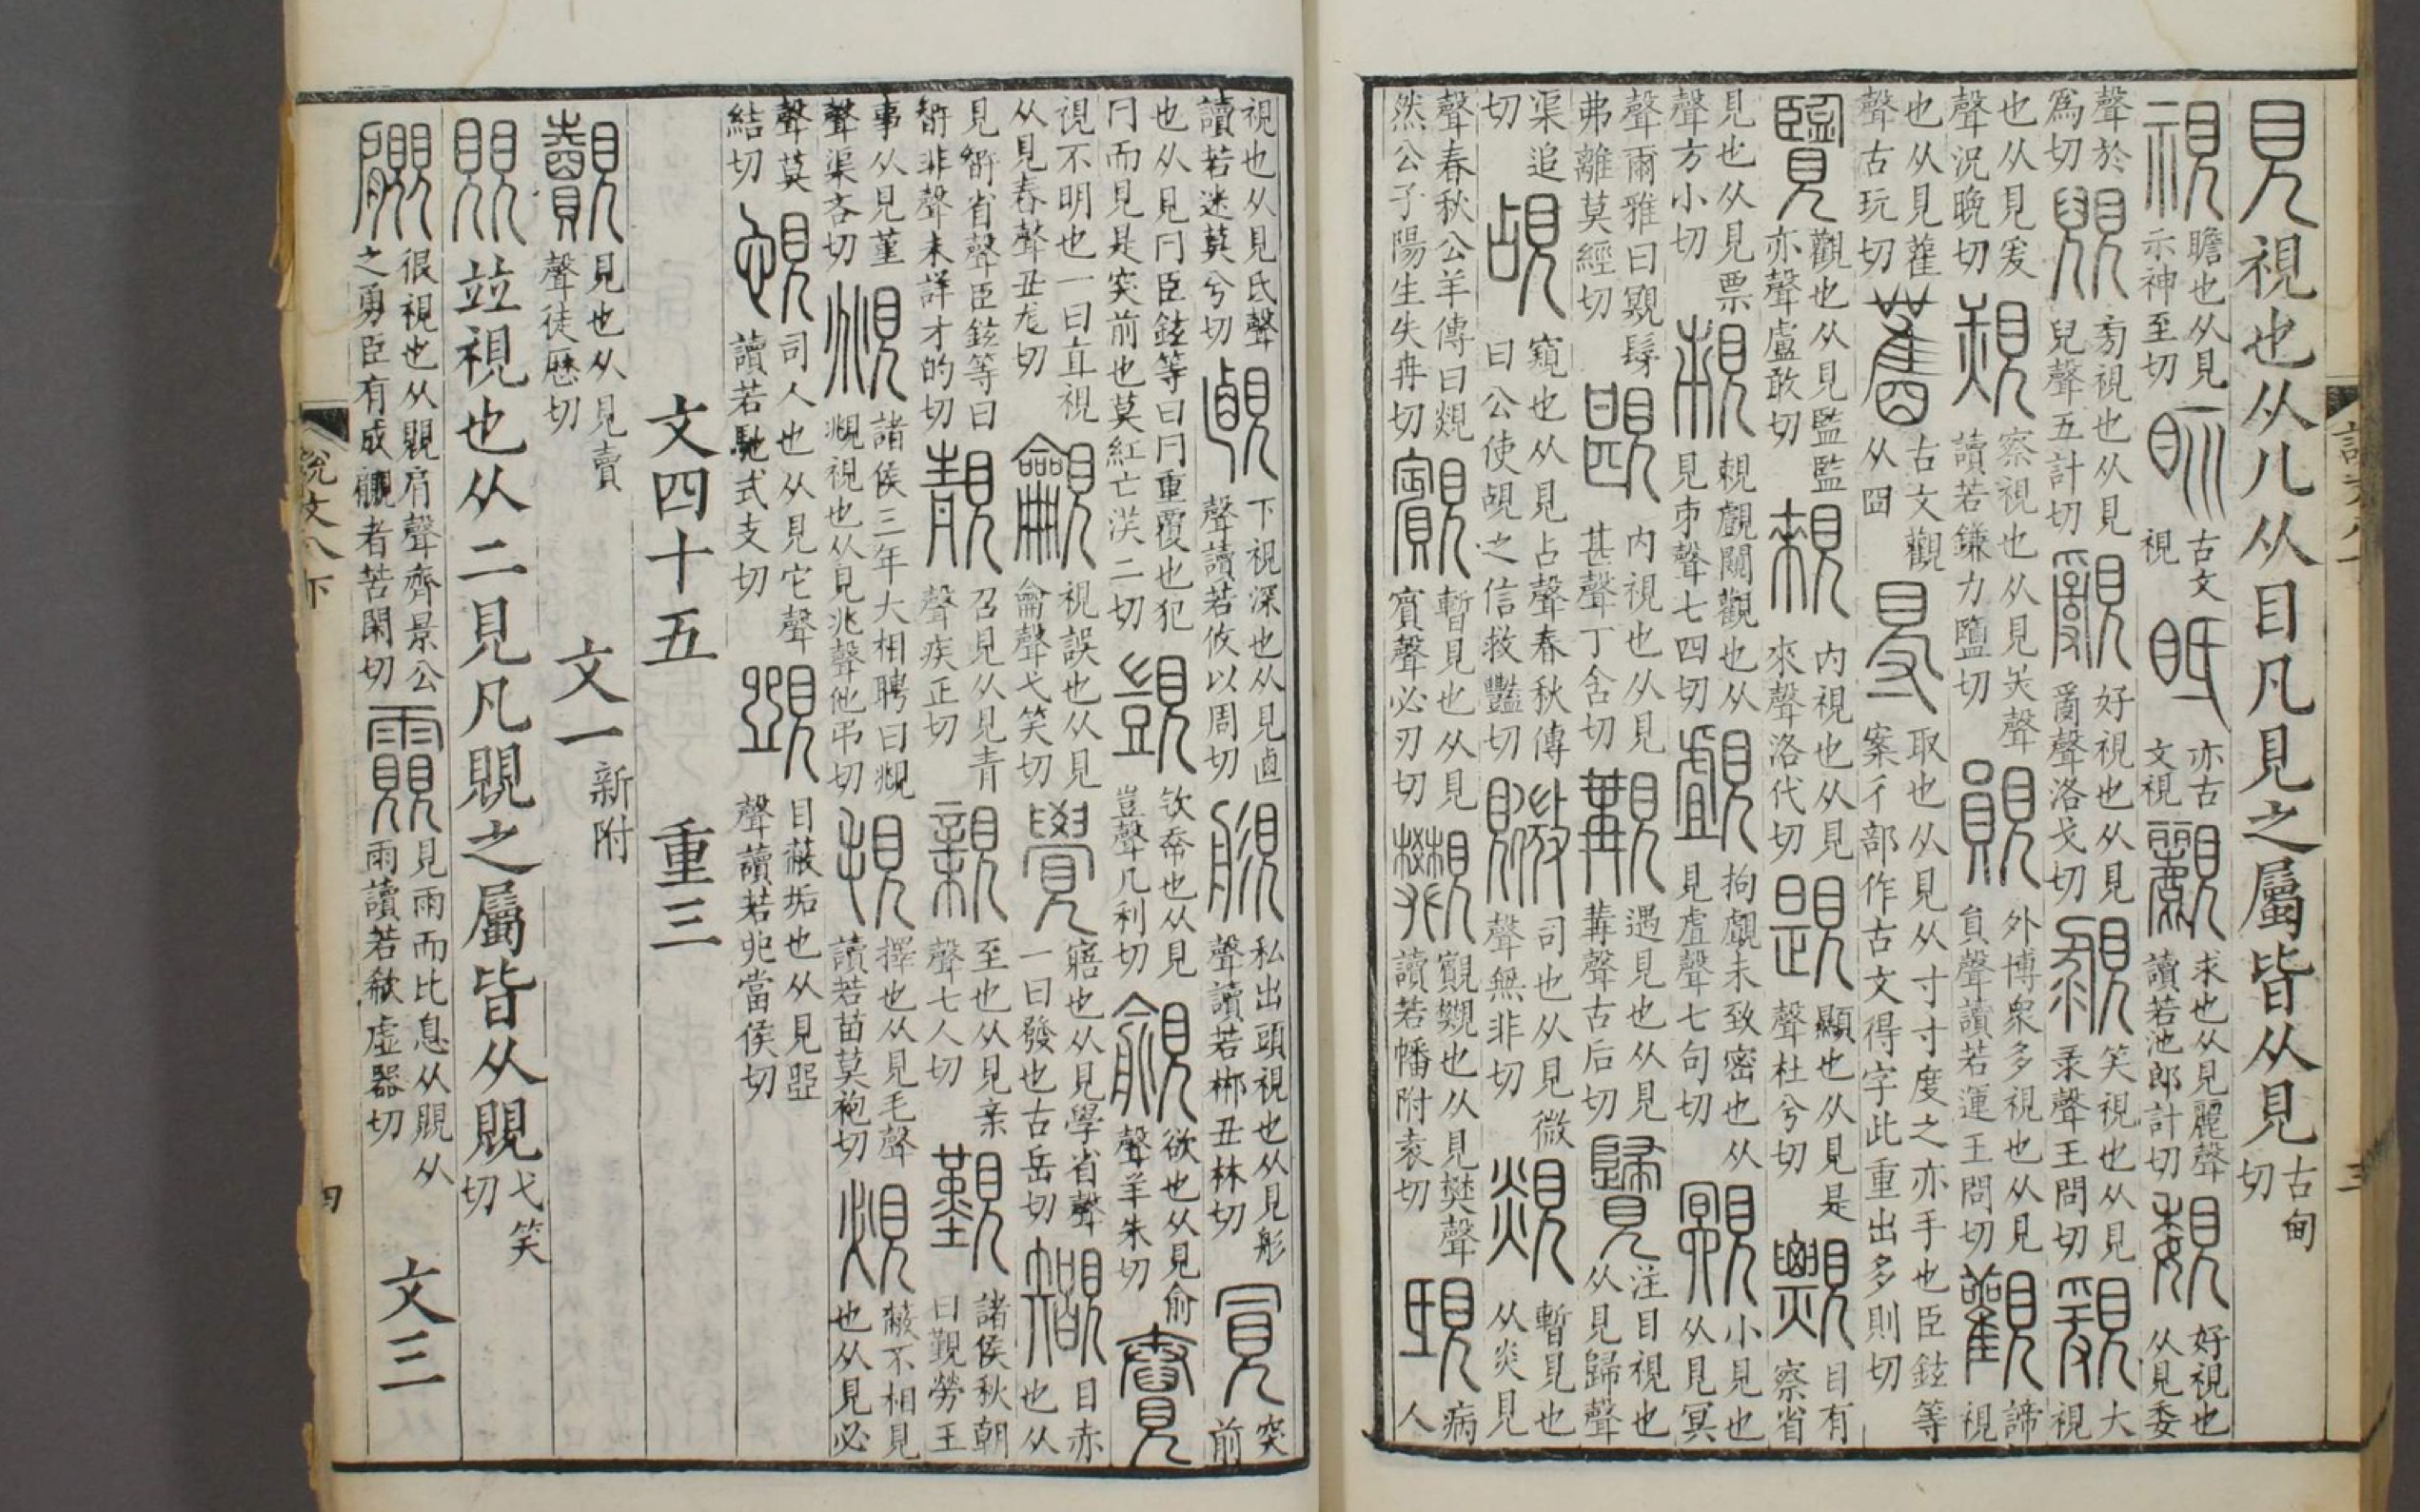 見視也从儿从目凡見之屬皆从見古甸切
視瞻也从見示神至切古文視眡亦古文視覼求也从見麗聲讀若池郎計切覣好視也从見委
聲於爲切覞旁視也从見兒聲五計切覶好視也从見𤔔聲洛戈切覙笑視也从見彔聲王問切䙮大視
也从見爰聲況晚切覝察視也从見𡗜聲讀若鎌力鹽切䚋外博衆多視也从見員聲讀若運王問切觀諦視
也从見雚聲古玩切古文觀从囧䙷取也从見从寸寸度之亦手也臣鉉等案彳部作古文得字此重出多則切
覽觀也从見監監亦聲盧敢切䚅內視也从見來聲洛代切䚣顯也从見是聲杜兮切目有察省
見也从見票聲方小切䙼覰闚觀也从見朿聲七四切覰拘覰未致密也从見虘聲七句切覭小見也从見冥
聲爾雅曰覭髳弗離莫經切內視也从見甚聲丁含切覯遇見也从見冓聲古后切注目視也从見歸聲
渠追切覘窺也从見占聲春秋傳曰公使覘之信救豔切覹司也从見微聲無非切覢暫見也从炎見
聲春秋公羊傳曰覢然公子陽生失冉切暫見也从見賓聲必刃切觀也从見樊聲讀若幡附袁切病人
視也从見氐聲讀若迷莫兮切下視深也从見𠧴聲讀若攸以周切私出頭視也从見肜聲讀若郴丑林切突前
也从見冃臣鉉等曰冃重覆也犯冃而見是突前也莫紅亡沃二切覬㰟㚔也从見豈聲几利切覦欲也从見俞聲羊朱切
視不明也一曰直視从見舂聲丑尨切視誤也从見龠聲弋笑切覺寤也从見學省聲一曰發也古岳切目赤也从
見𥏼省聲臣鉉等曰𥏼非聲未詳才的切靚召見从見青聲疾正切親至也从見亲聲七人切覲諸侯秋朝曰覲勞王
事从見堇聲渠吝切覜諸侯三年大相聘曰覜覜視也从見兆聲他弔切覒擇也从見毛聲讀若苗莫袍切覕蔽不相見也从見必
聲莫結切司人也从見它聲讀若馳式支切目蔽垢也从見㖾聲讀若兜當侯切
文四十五 重三
覿見也从見賣聲徒歷切 文一新附
覞竝視也从二見凡覞之屬皆从覞弋笑切
很視也从覞肩聲齊景公之勇臣有成覸者苦閑切䨳見雨而比息从覞从雨讀若欷虛器切 文三
說文八下
四
三